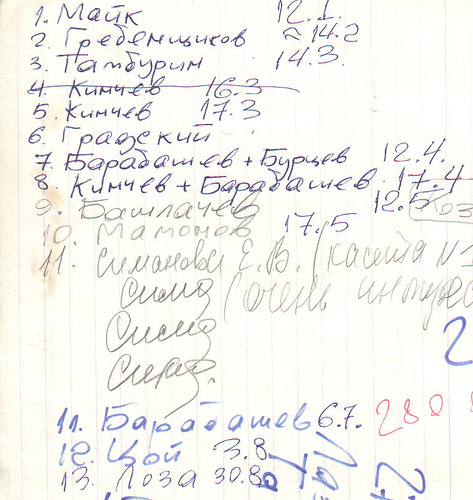 1. Майк 12.1.
2. Гребенщиков ≈14.2
3. Тамбурин 14.3.
4. Кинчев 16.3
5. Кинчев 17.3
6. Градский
7. Барабашев + Бурцев 12.4.
8. Кинчев + Барабашев 17.4
9. Башлачев 12.5
10. Мамонов 17.5
11. Симанова Е.В. (кассета N
(очень интерес
11. Барабашев 6.7. 280
12. Цой 3.8
13. Лоза 30.8